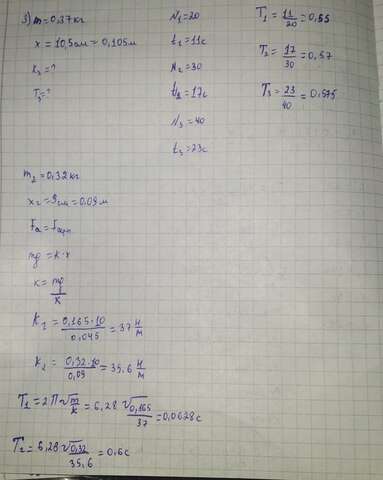 3) m=0,37кг
x=10,5см=0,105м
K3=?
T3=?
N1=20
t1=11c
N2=30
t2=17c
N3=40
t3=23c
T1=11/20=0,55
T2=17/30=0,57
T3=23/40=0,575
m2=0,32кг
x2=9см=0,09м
mg=k·x
k=mg/K
K1=0,165·10/0,045=37 Н/м
K2=0,32·10/0,09=35,6 Н/м
T1=2π√m/k=6,28 √0,165/37=0,0628c
T2=6,28√0,32/35,6=0,6c